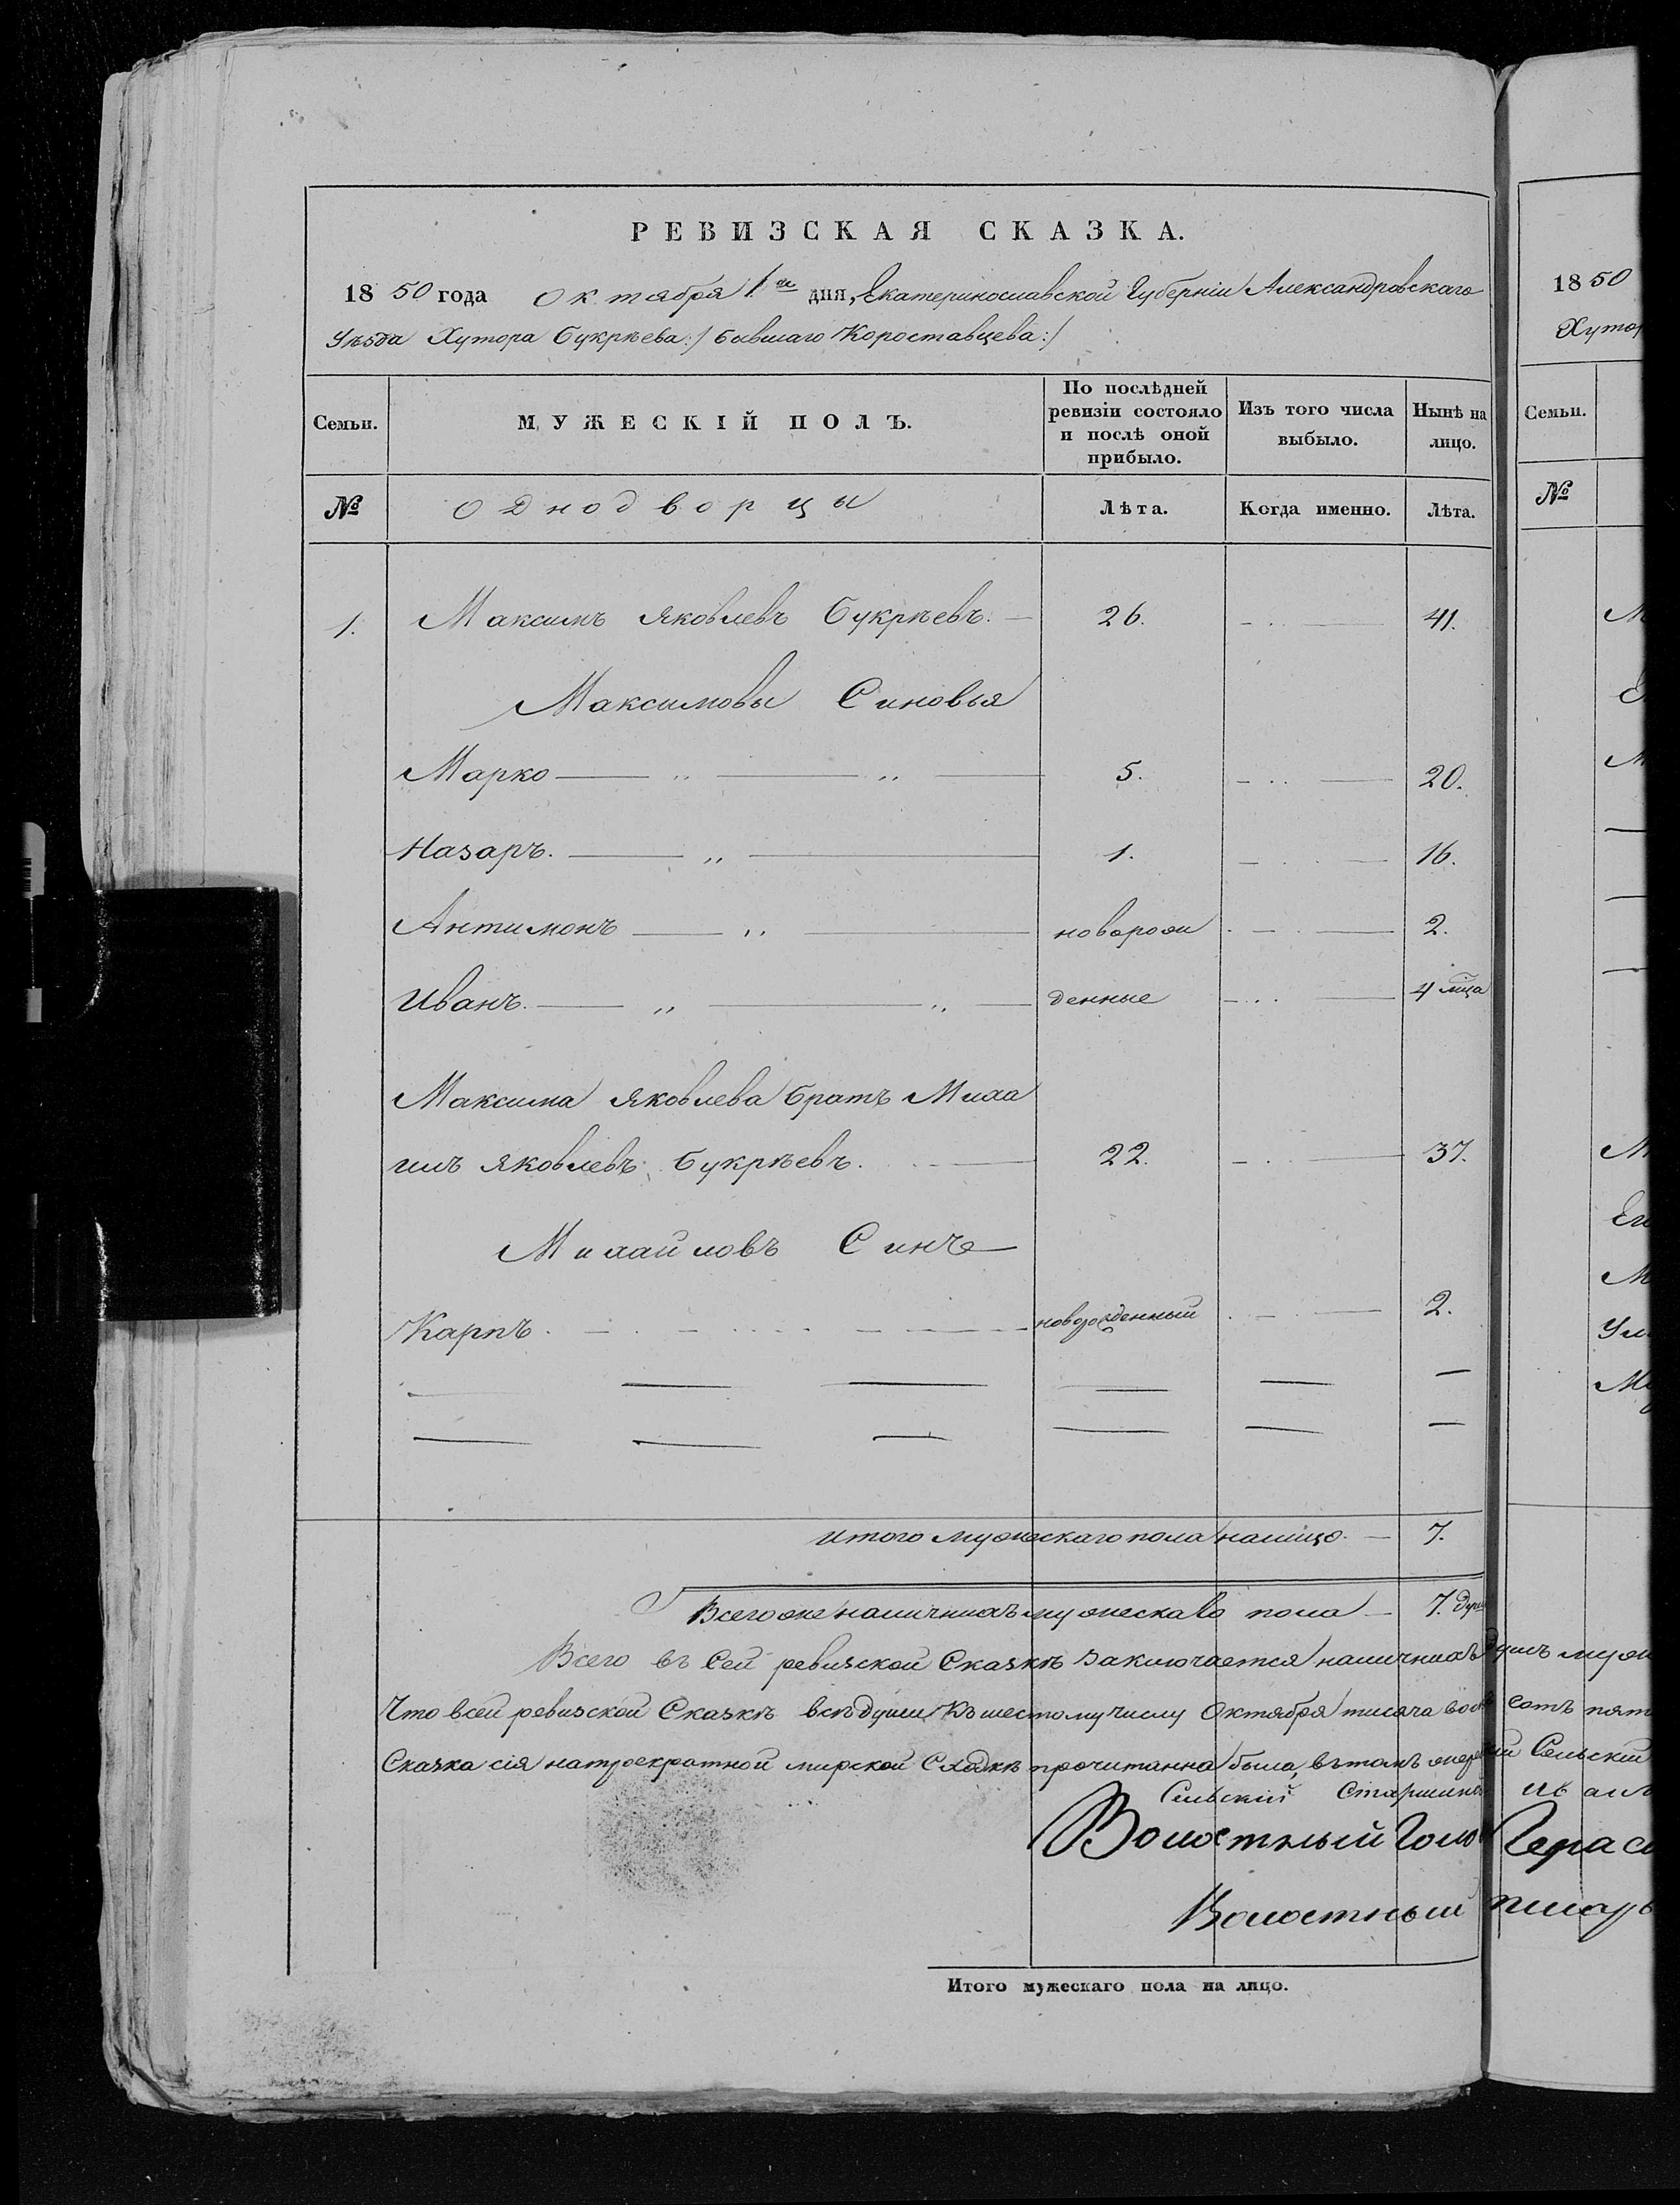 РЕВИЗСКАЯ СКАЗКА.
1850 года Октября 1го дня, Екатеринославской Губерніи Александровскаго
Уѣзда Хутора Букрѣева :/ бывшаго Короставцева :/
Семьи. МУЖЕСКІЙ ПОЛЪ. По послѣдней ревизіи состояло и послѣ оной прибыло. Изъ того числа выбыло. Нынѣ на лицо.
№ Однодворцы Лѣта. Когда именно. Лѣта.
1. Максимъ Яковлевъ Букрѣевъ. 26. 41.
Максимовы Синовья
Марко 5. 20.
Назаръ. 1. 16.
Антимонъ новорож 2.
Иванъ. денные 4 мца
Максима Яковлева братъ Миха
илъ Яковлевъ Букрѣевъ. 22. 37.
Михайловъ Синъ
Карпъ. новорожденный 2.
Итого мужескаго пола налицо. 7.
Всего же наличнихъ мужескаго пола 7. душ
Всего въ Сей ревизской Сказкѣ заключается наличнихъ душъ муж
Что всей ревизской Сказкѣ всѣ души Къ шестому числу Октября тисяча восем сотъ пят
Сказка сія на троекратной мирской Сходкѣ прочитанна была, въ томъ Сельскій
Сельскій Старшина
Волостный Голова Герас
Волостный писарь
Итого мужескаго пола на лицо.
1850
Хутор
Семьи.
№